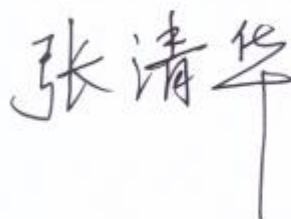 张清华